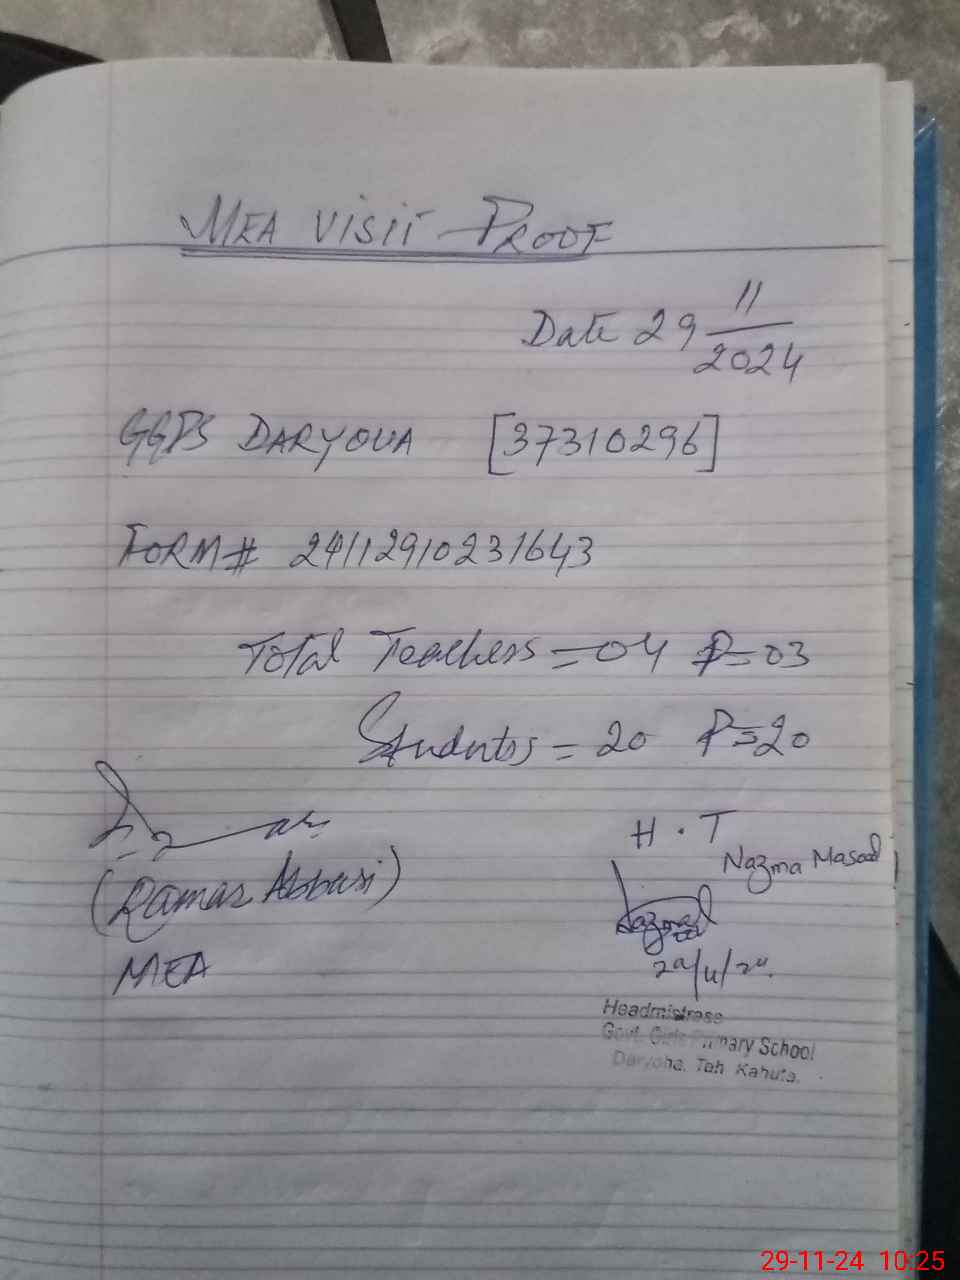 MEA VISIT PROOF
Date 29 11/2024
GGPS DARYOUA [37310296]
FORM # 24112910231643
Total Teachers = 04 P=03
Students = 20 P=20
H.T
Nazma Masood
(Qamar Abbasi)
MEA
29/11/24.
Headmistress
Govt. Girls Primary School
Daryoha. Teh. Kahuta.
29-11-24 10:25